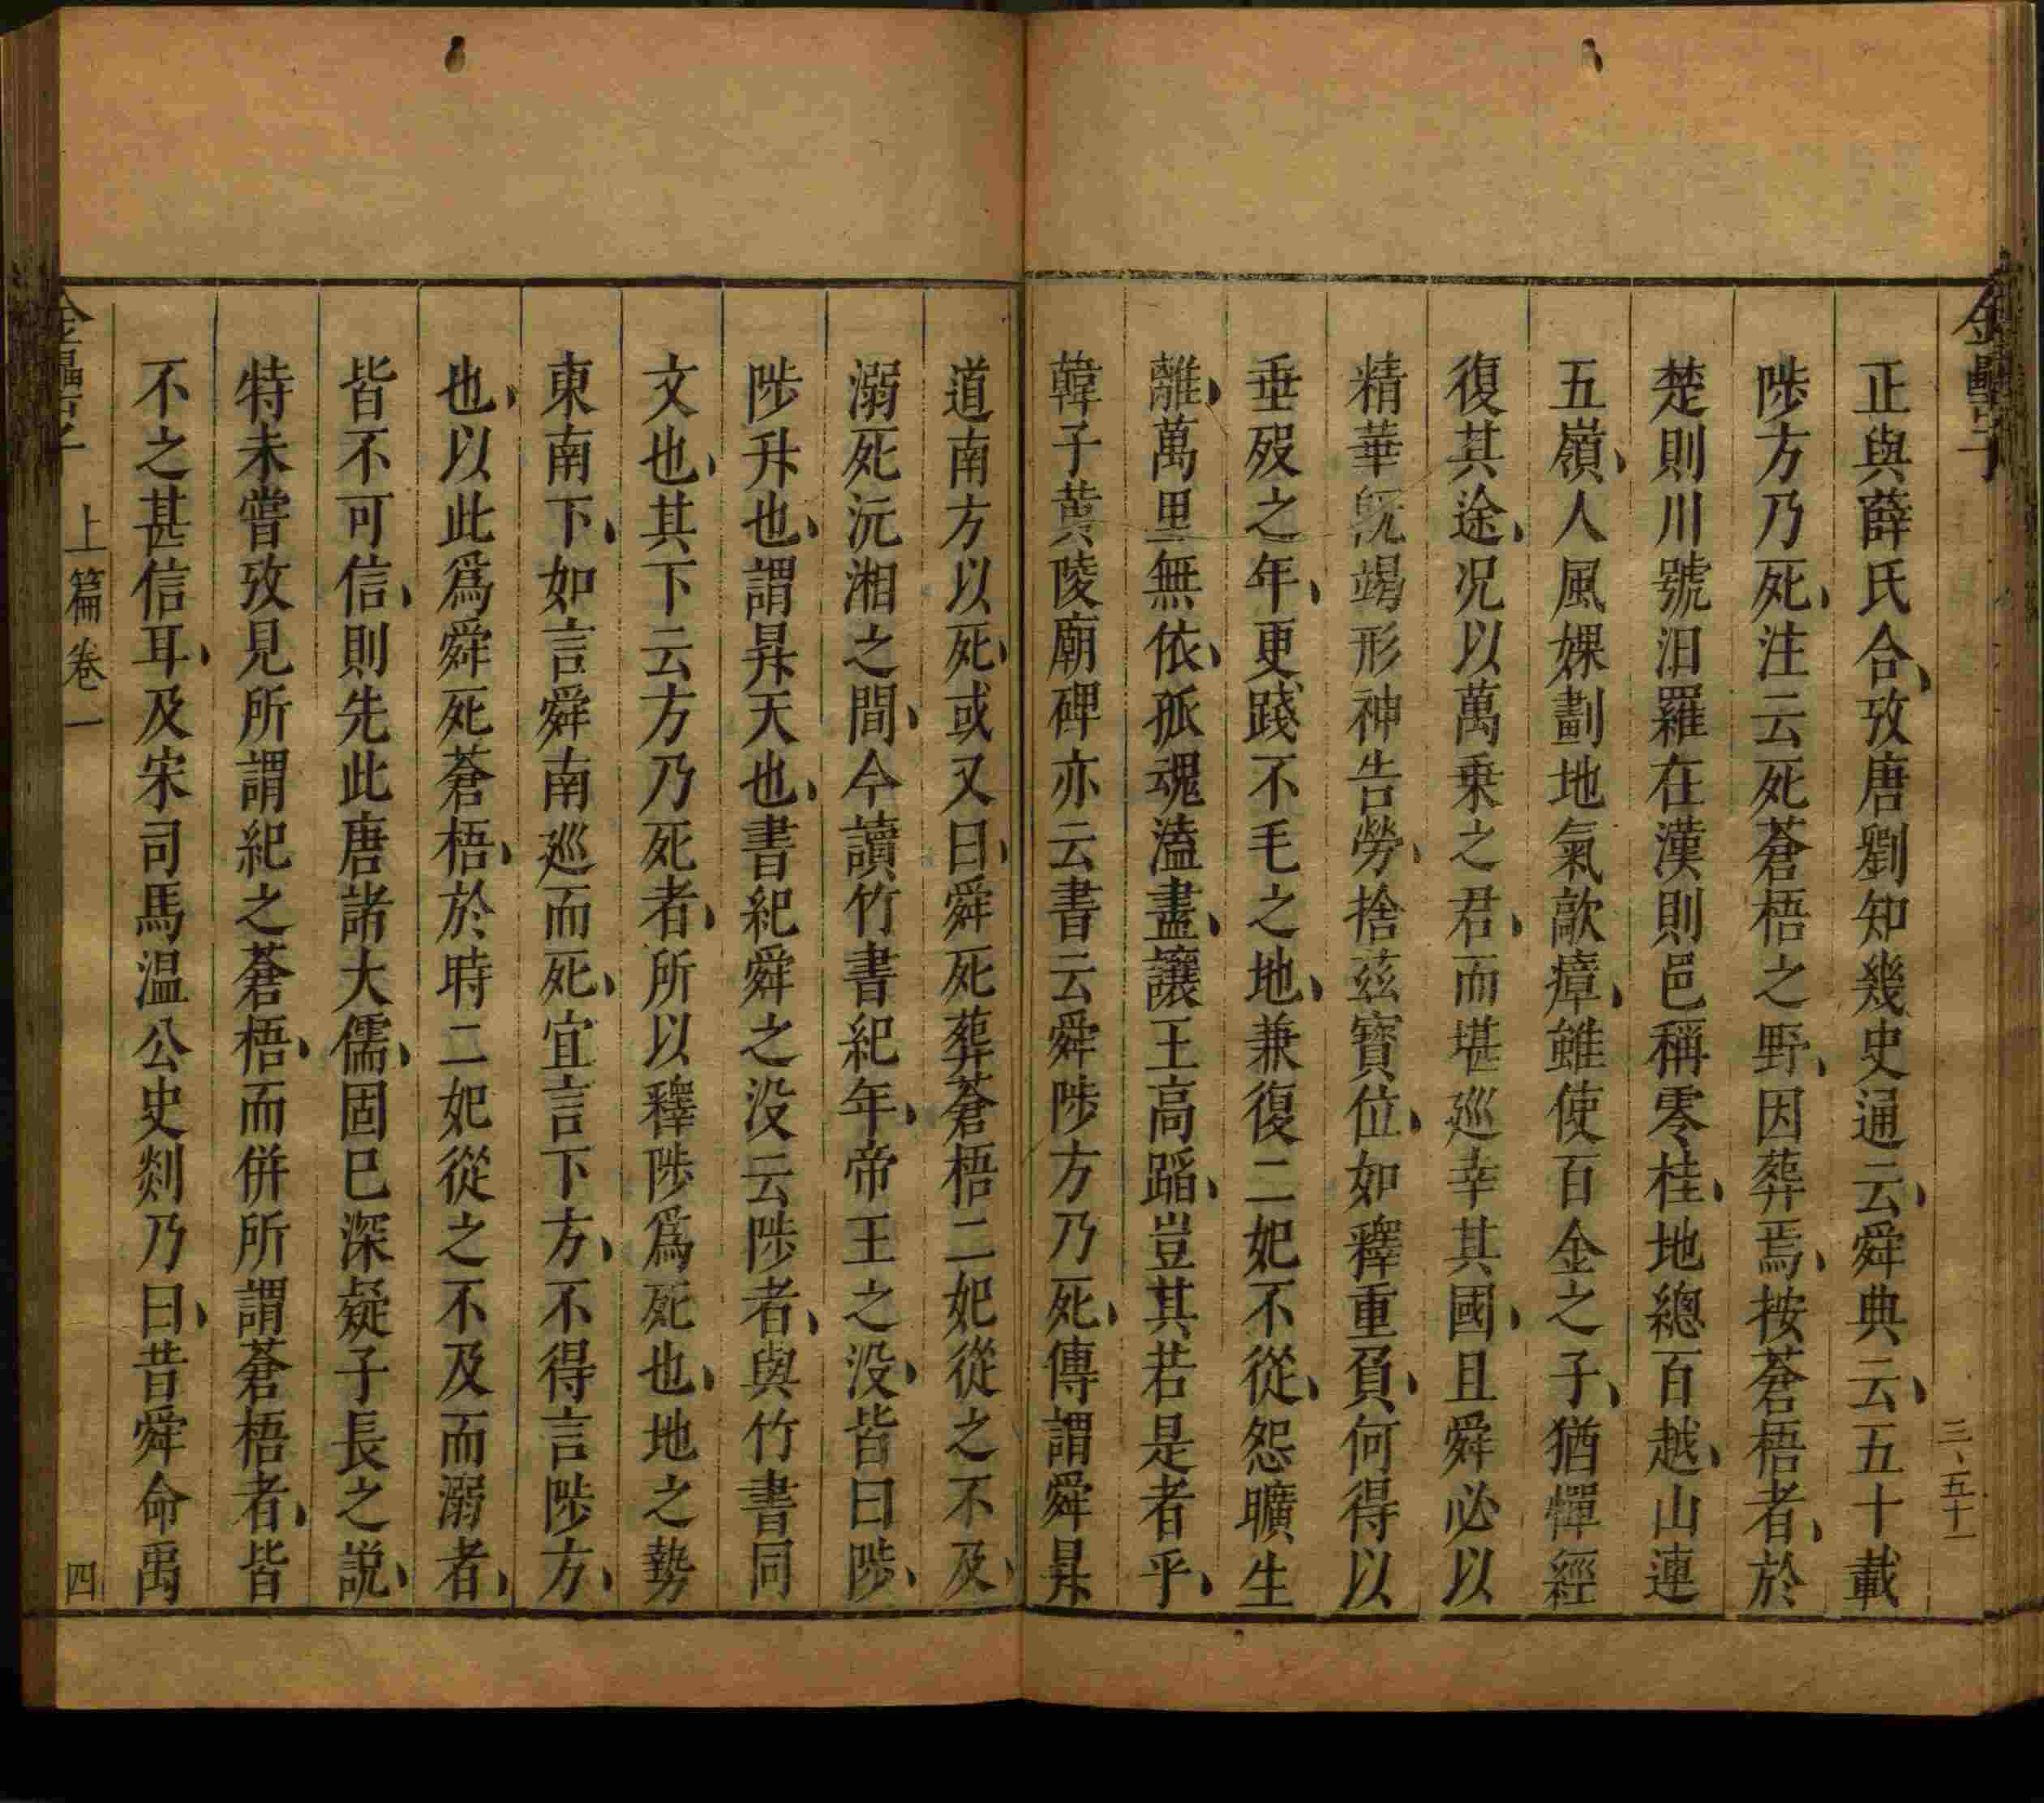 金罍子
三、五十一
正與薛氏合、攷唐劉知幾史通云、舜典云、五十載
陟方乃死、注云死蒼梧之野、因葬焉、按蒼梧者、於
楚則川號汨羅在漢則邑稱零桂、地總百越、山連
五嶺、人風婐劃地氣歊瘴、雖使百金之子、猶憚經
復其途、况以萬乗之君、而堪巡幸其國、且舜必以
精華旣竭形神告勞、捨茲寳位、如釋重負、何得以
垂殁之年、更踐不毛之地、兼復二妃不從、怨曠生
離、萬里無依、孤魂溘盡、讓王高蹈、豈其若是者乎、
韓子黄陵廟碑亦云書云舜陟方乃死、傳謂舜昇
道南方以死、或又曰、舜死葬蒼梧二妃從之不及、
溺死沅湘之間、今讀竹書紀年、帝王之没、皆曰陟、
陟升也、謂昇天也、書紀舜之没云陟者、與竹書同
文也、其下云方乃死者、所以釋陟爲死也、地之勢
東南下、如言舜南巡而死、宜言下方、不得言陟方、
也、以此爲舜死蒼梧、於時二妃從之不及而溺者、
皆不可信、則先此唐諸大儒、固已深疑子長之說、
特未嘗攷見所謂紀之蒼梧、而併所謂蒼梧者、皆
不之甚信耳、及宋司馬温公史剡乃曰、昔舜命禹
上篇卷一
四